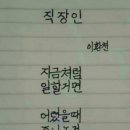 직장인
이환천
지금처럼
일할거면
어렸을때